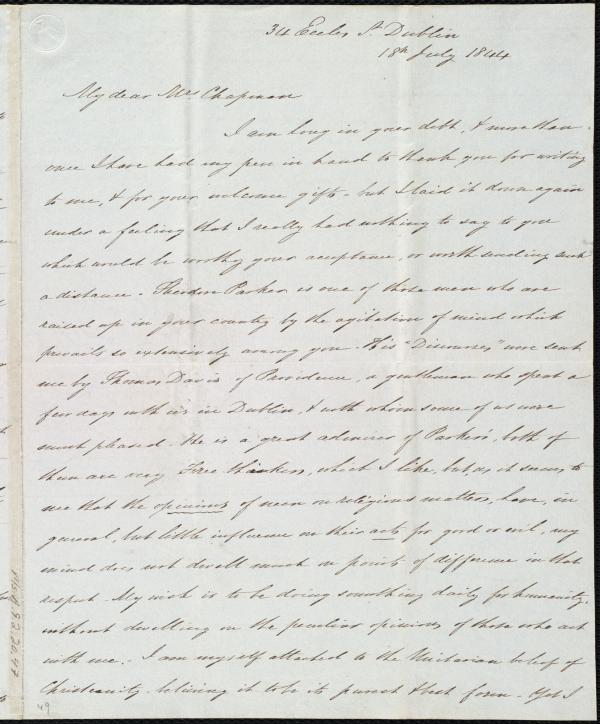 34 Eccles St. Dublin
18th July 1844
My dear Mrs. Chapman
I am long in your debt, & more than
once I have had my pen in hand to thank you for writing
to me, & for your welcome gifts - but I laid it down again
under a feeling that I really had nothing to say to you
which would be worthy your acceptance, or worth sending such
a distance. Theodore Parker is one of those men who are
raised up in your country by the agitation of mind which
prevails so extensively among you. His "Discourses" were sent
me by Thomas Davis of Providence, a gentleman who spent a
few days with us in Dublin, & with whom some of us were
much pleased. He is a great admirer of Parker's, both of
them are very Free thinkers, which I like, but, as it seems to
me that the opinions of men on religious matters, have, in
general, but little influence on their acts for good or evil, my
mind does not dwell much on points of difference in that
respect. My wish is to be doing something daily for humanity,
without dwelling on the peculiar opinions of those who act
with me. I am myself attached to the Unitarian belief of
Christianity believing it to be its purest & best form - Yet I
Ms.A.9.2.20.47
49